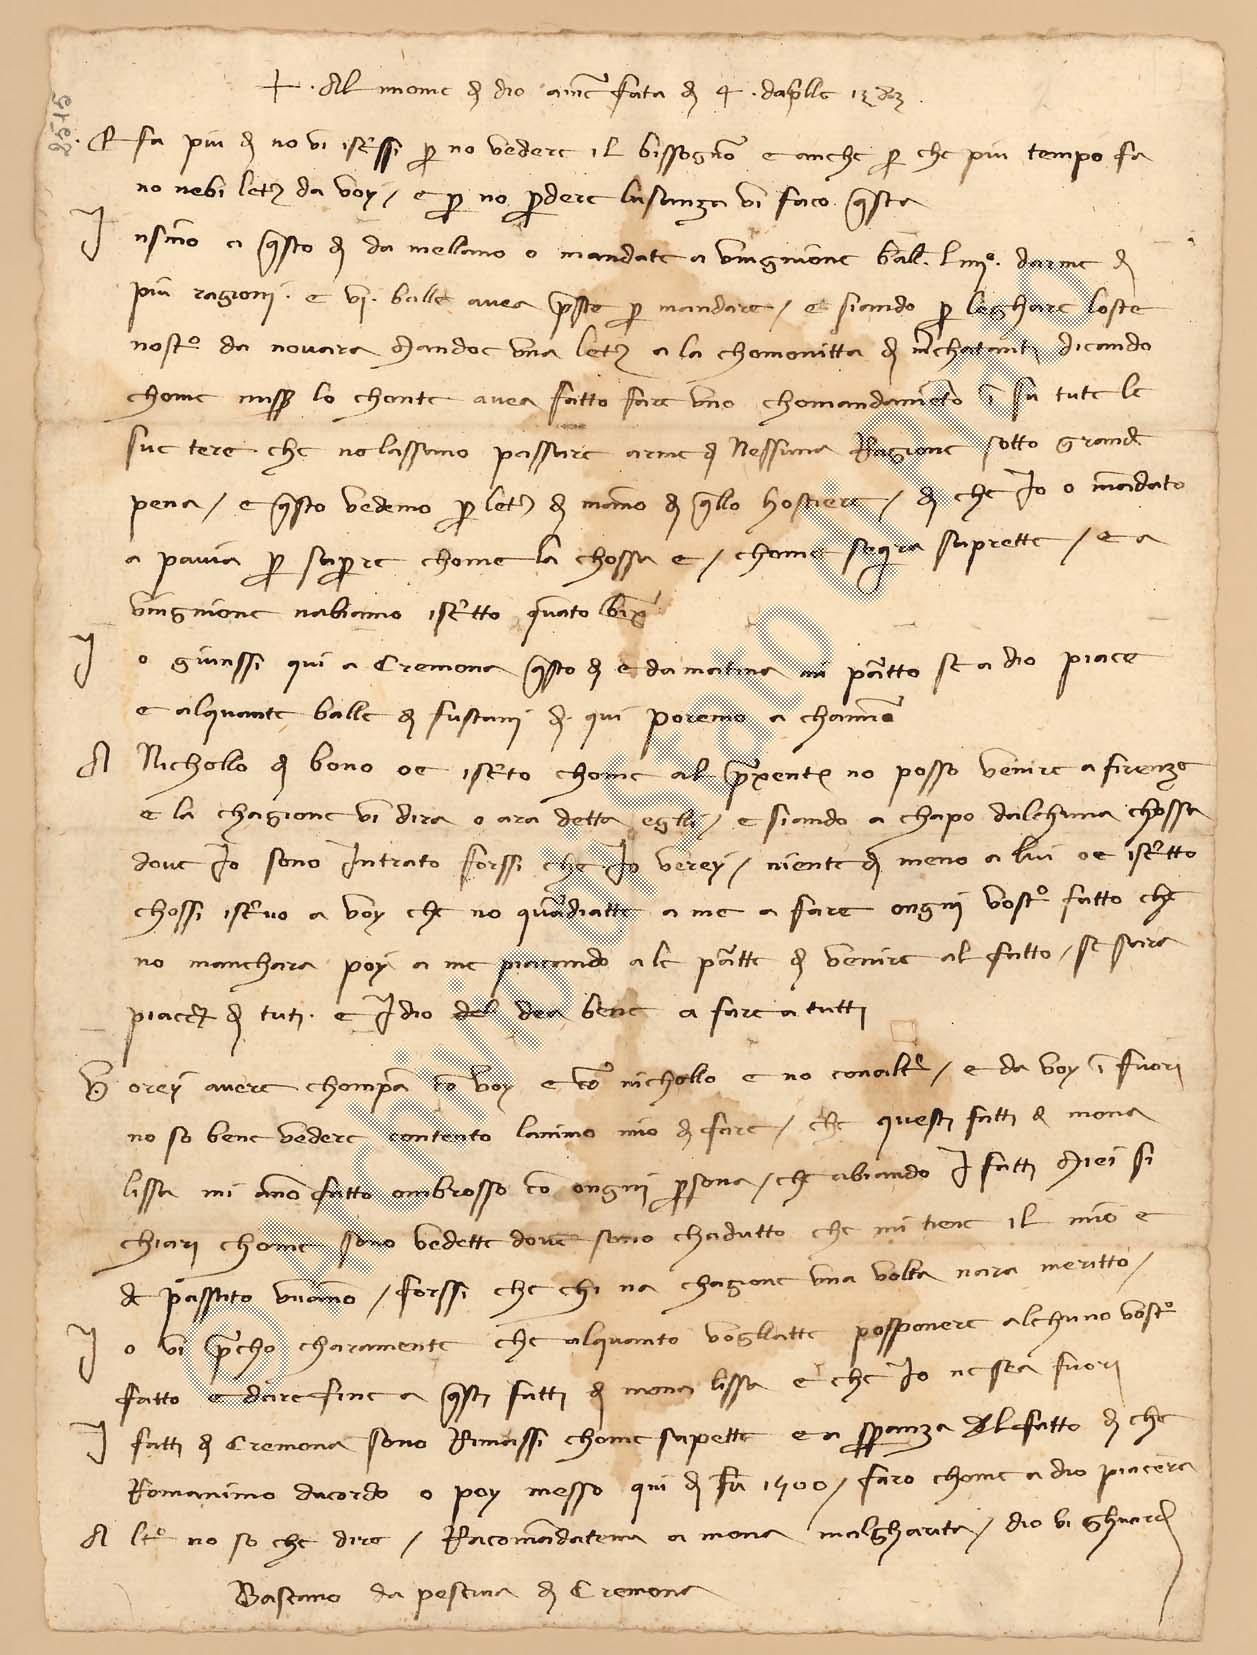 + . Al nnome di dio amē fata di 4 . daplle 13
E fa piu di no vi iscrissi p no vedere il bissogno e anche p che piu tempo fa
no nebi letr da voy / e p no pdere lusanza vi faco qsta
I nsino a qsto di da mellano o mandate a vingnione ball. arme di
piu ragioni . e vi . balle avea pste p mandare / e siando p leghare loste
nosto da novara mandoe una letr a la chomonitta di mchatanti dicando
chome miss lo chonte avea fatto fare uno chomandamēto ī su tute le
sue tere che no lassano passare arme di nessuna Ragione sotto grand
pena / e qsto vedemo p letr di mano di qllo hostiere / di che Io o mādato
a pavia p saprc chome la chossa e / chome sogra saprette / e a
vingnione nabiamo iscrtto quato
I o giunssi qui a Cremona qsto di e da matina mi patto se a dio piace
e alquante balle di fustani di qui poremo a chamīo
A Nichollo di bono oe iscrto chome al prexente no posso venire a firenze
e la chagione vi dira o ara detta eglli / e siando a chapo dalchuna chossa
dove Io sono Intrato forssi che Io verey / niente di meno a lui oe iscrtto
chossi iscrivo a voy che no guādiatte a me a fare ongni vosto fatto che
no manchara poy a me piacando a le patte di venire al fatto / se sara
piacer di tuti . e Idio del dea bene a fare a tutti
V orey avere chompa cō voy e cō nichollo e no con altr / e da voy ī fuori
no so bene vedere contento lanimo mio di fare / che questi fatti di mona
lissa mi ano fatto ombrosso cō ongni psona / che abiando I fatti miei si
chiari chome sono vedette dove sono chadutto che mi tiene il mio e
de passato unano / forssi che chi na chagione una volta nara meritto /
I o vi pcho charamente che alquanto vogliatte posponere alchuno vosto
fatto e dare fine a qsti fatti di mona lissa e che Io ne sea fuori
I fatti di Cremona sono Rimassi chome sapette e a spanza del fatto di che
Romanimo dacordo o poy messo qui di fa 1500 / faro chome a dio piacera
A lto no so che dire / Racomādatema a mona malgharita / dio vi ghuardi
Bascano da pescina di Cremona